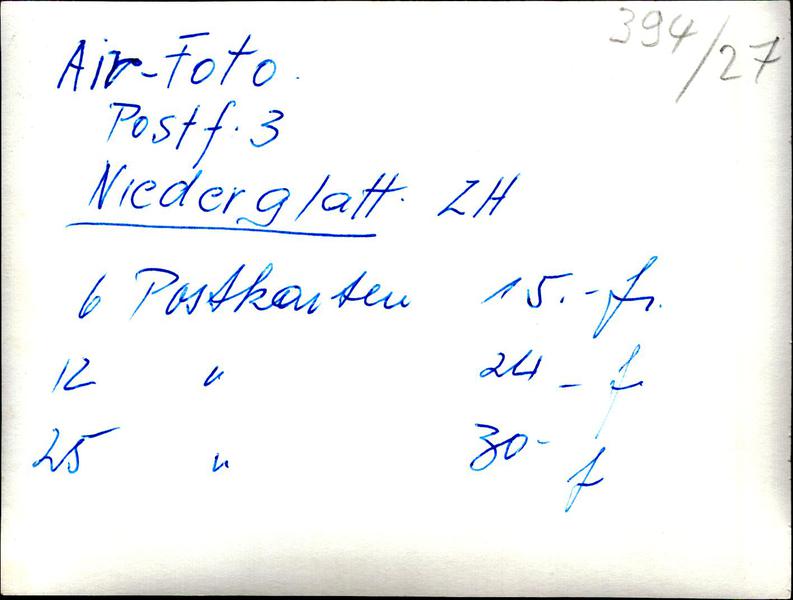 394/27
Air-Foto.
Postf. 3
Niederglatt. ZH
6 Postkarten 15.- fr.
12 " 24 - f
25 " 30 - f